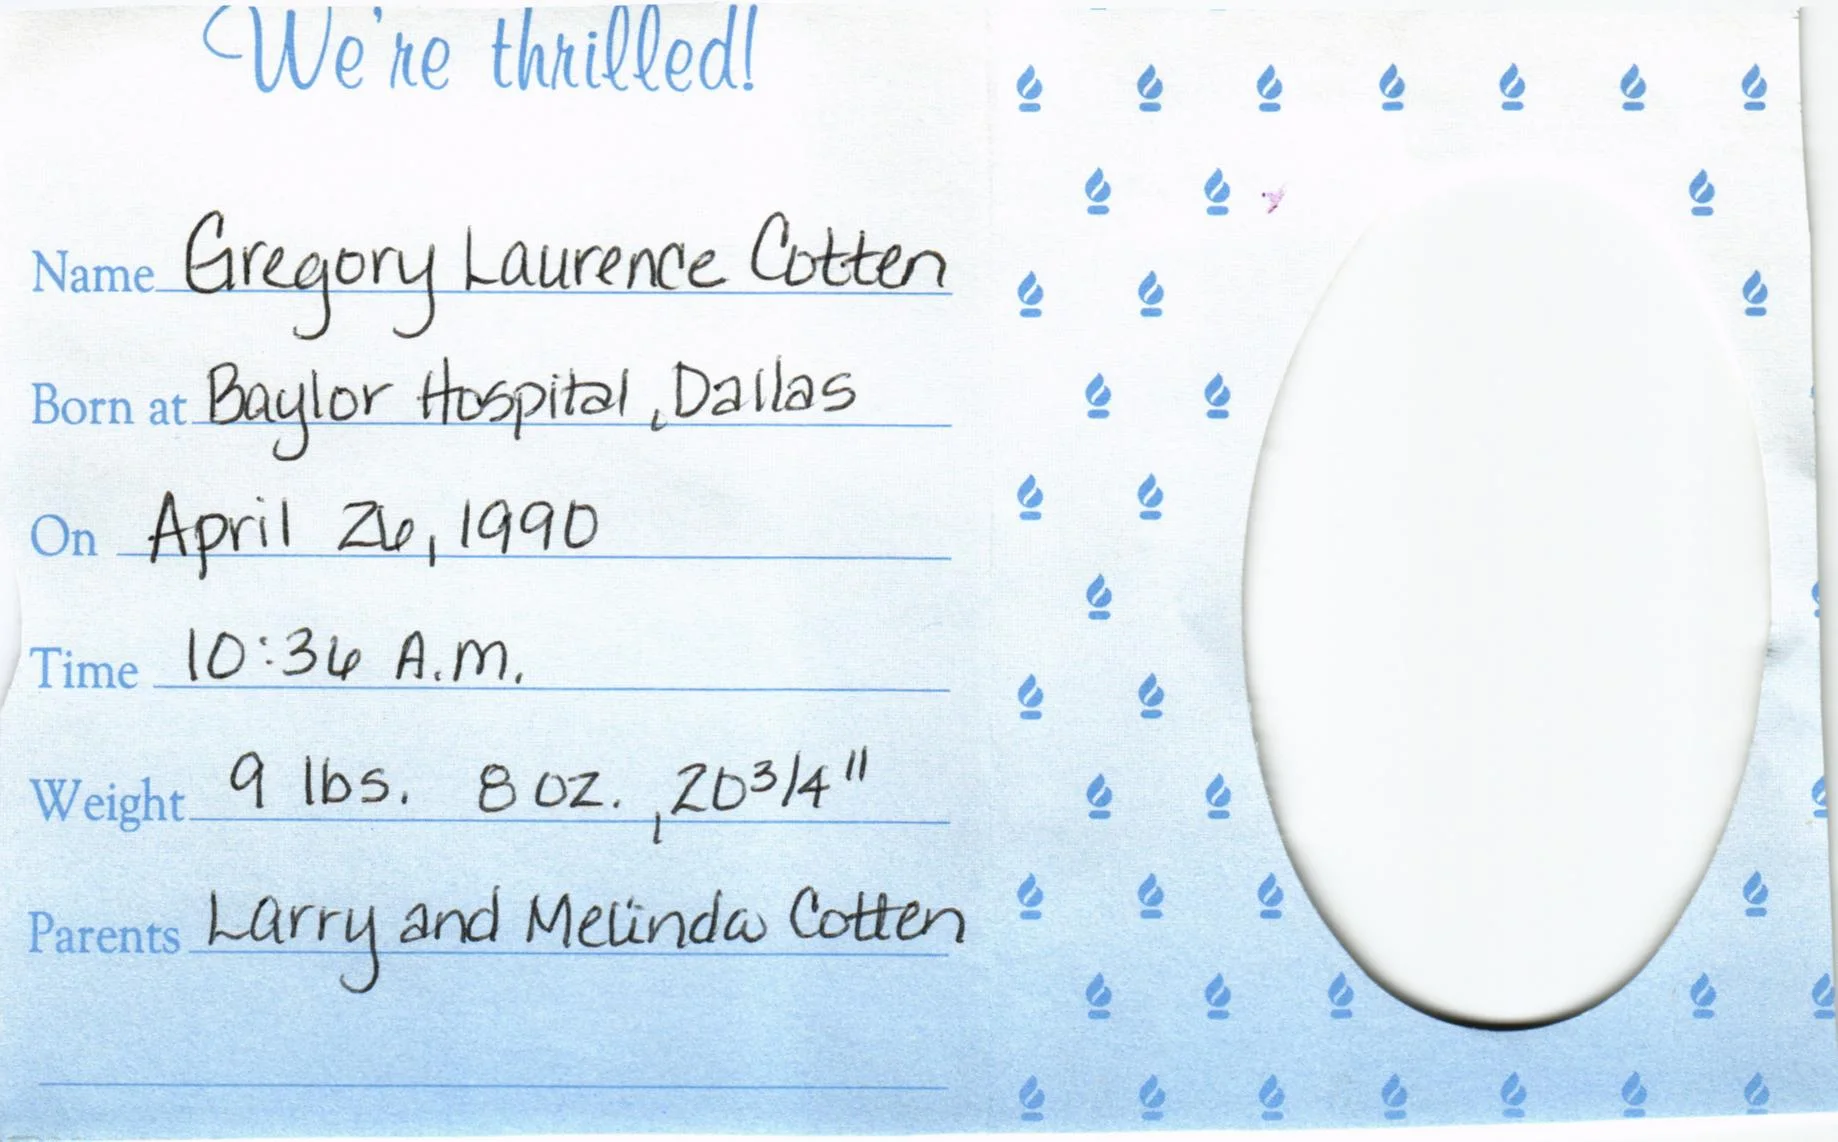 We're thrilled!
Name Gregory Laurence Cotten
Born at Baylor Hospital, Dallas
On April 26, 1990
Time 10:36 A.M.
Weight 9 lbs. 8 oz., 20 3/4"
Parents Larry and Melinda Cotten